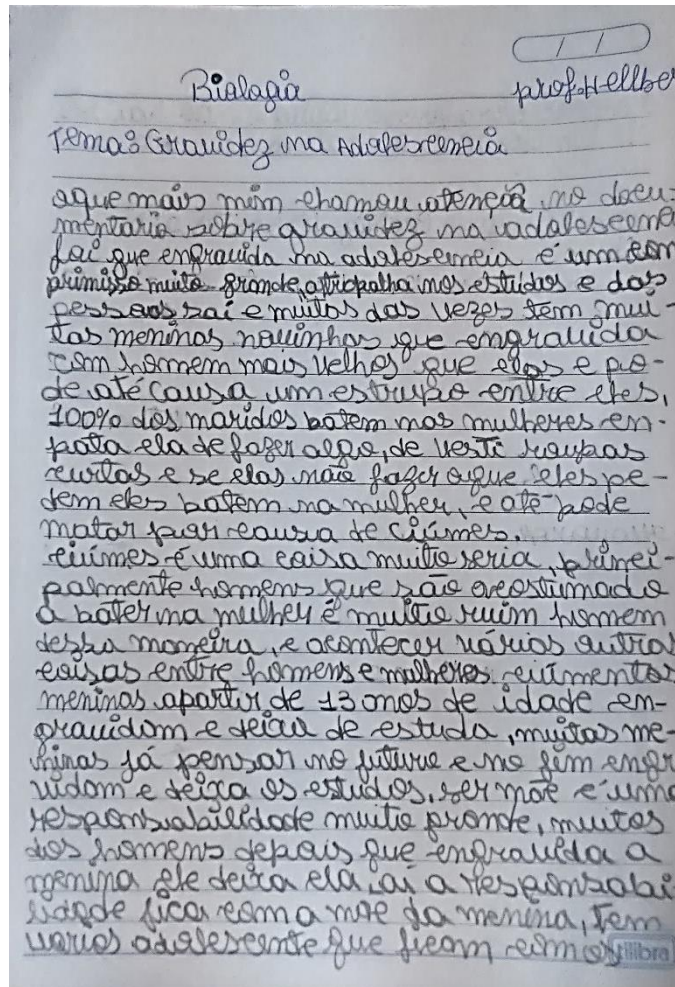 / /
Biologia prof. Hellbe
Tema: Gravidez na Adolescencia
aque mais mim chamou atenção no docu-
mentario sobre gravidez na adolescenc
foi que engravida na adolescencia é um com
primisso muito grande, atrapalha nos estudos e das
pessoas sai e muitos das vezes tem mui-
tas meninas novinhas que engravida
com homem mais velhos que elas e po-
de até causa um estrupo entre eles,
100% dos maridos batem nas mulheres en-
pota ela de fazer algo, de vesti roupas
curtas e se elas não fazer oque eles pe-
dem eles batem na mulher, e até pode
matar por causa de ciúmes.
ciúmes é uma coisa muito seria, princi-
palmente homens que são acostumado
a bater na mulher é muito ruim homem
dessa maneira, e acontecer vários outras
coisas entre homens e mulheres ciumentos
meninas apartir de 13 anos de idade en-
gravidam e deixa de estuda, muitas me-
ninas já pensar no futuro e no fim engr
vidam e deixa os estudos, ser mãe é uma
responsabilidade muito grande, muitos
dos homens depois que engravida a
menina ele deixa ela, aí a responsabi
lidade fica com a mãe da menina, tem
varios adolescente que ficam com os